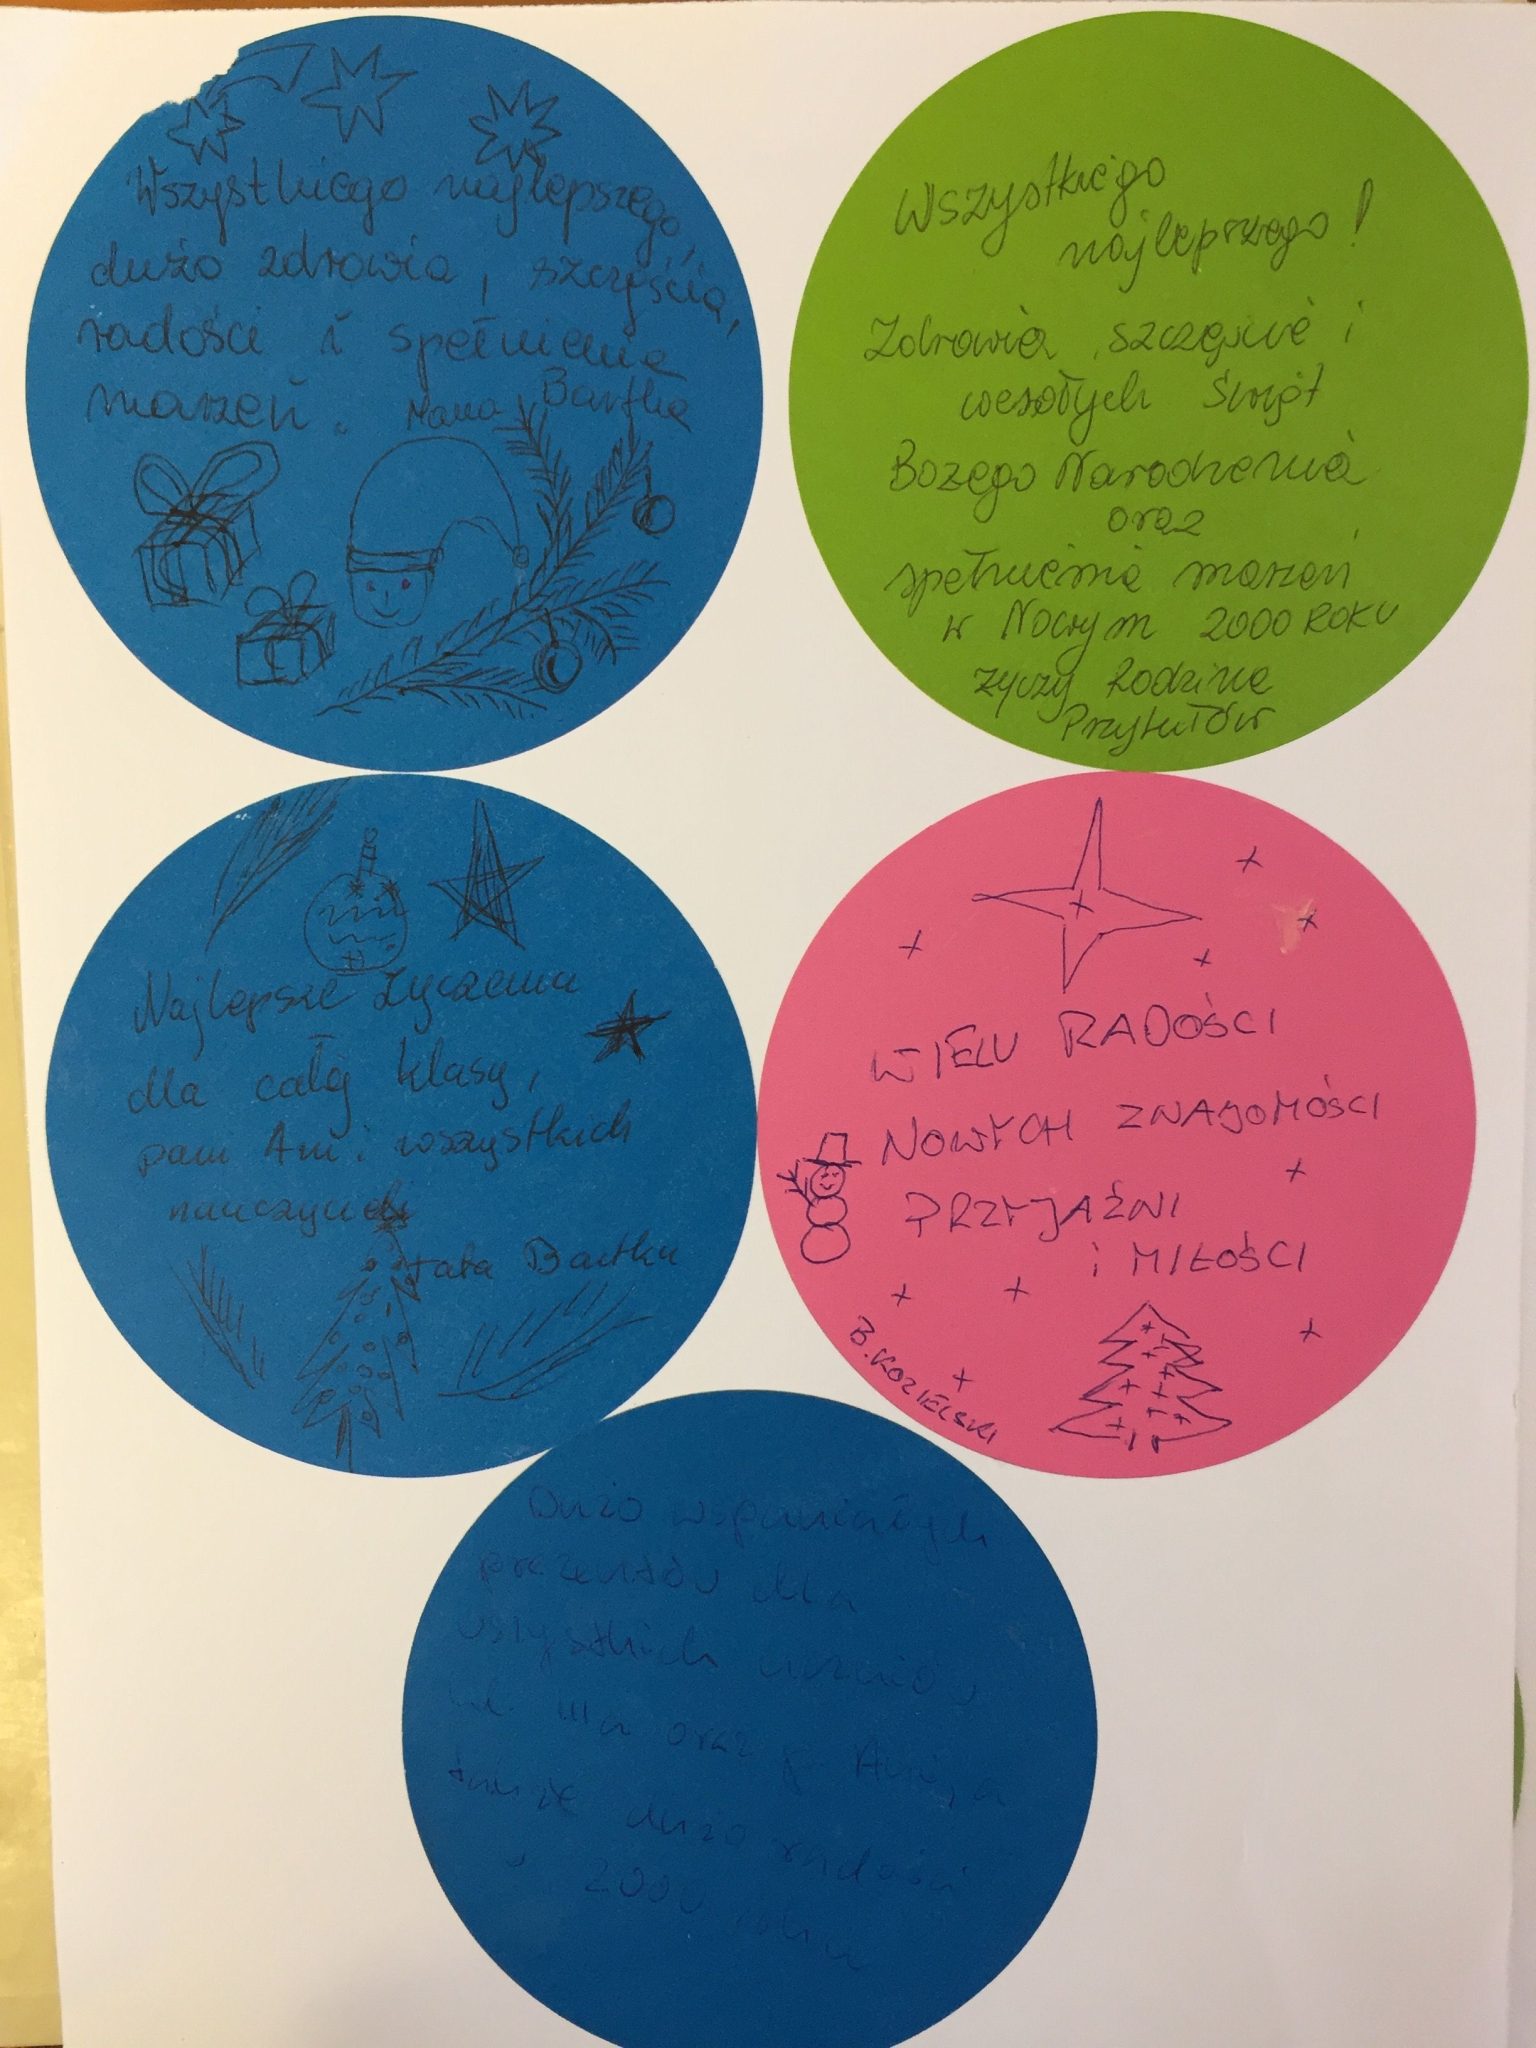 Wszystkiego najlepszego,
dużo zdrowia, szczęścia,
radości i spełnienia
marzeń. Mama Bartka
Wszystkiego
najleprzego!
Zdrowia, szczęście i
wesołych Świąt
Bożego Narodzenia
oraz
spełnienia marzeń
w Nowym 2000 ROKU
życzy Rodzina
Przytułów
Najlepsze życzenia
dla całej klasy,
pani Ani i wszystkich
nauczycieli
tata Bartka
WIELU RADOŚCI
NOWYCH ZNAJOMOŚCI
PRZYJAŹNI
i MIŁOŚCI
B. KOZIELSKI
Dużo wspaniałych
prezentów dla
wszystkich uczniów
kl. IIIa oraz p. Ani, a
także dużo radości
w 2000 roku